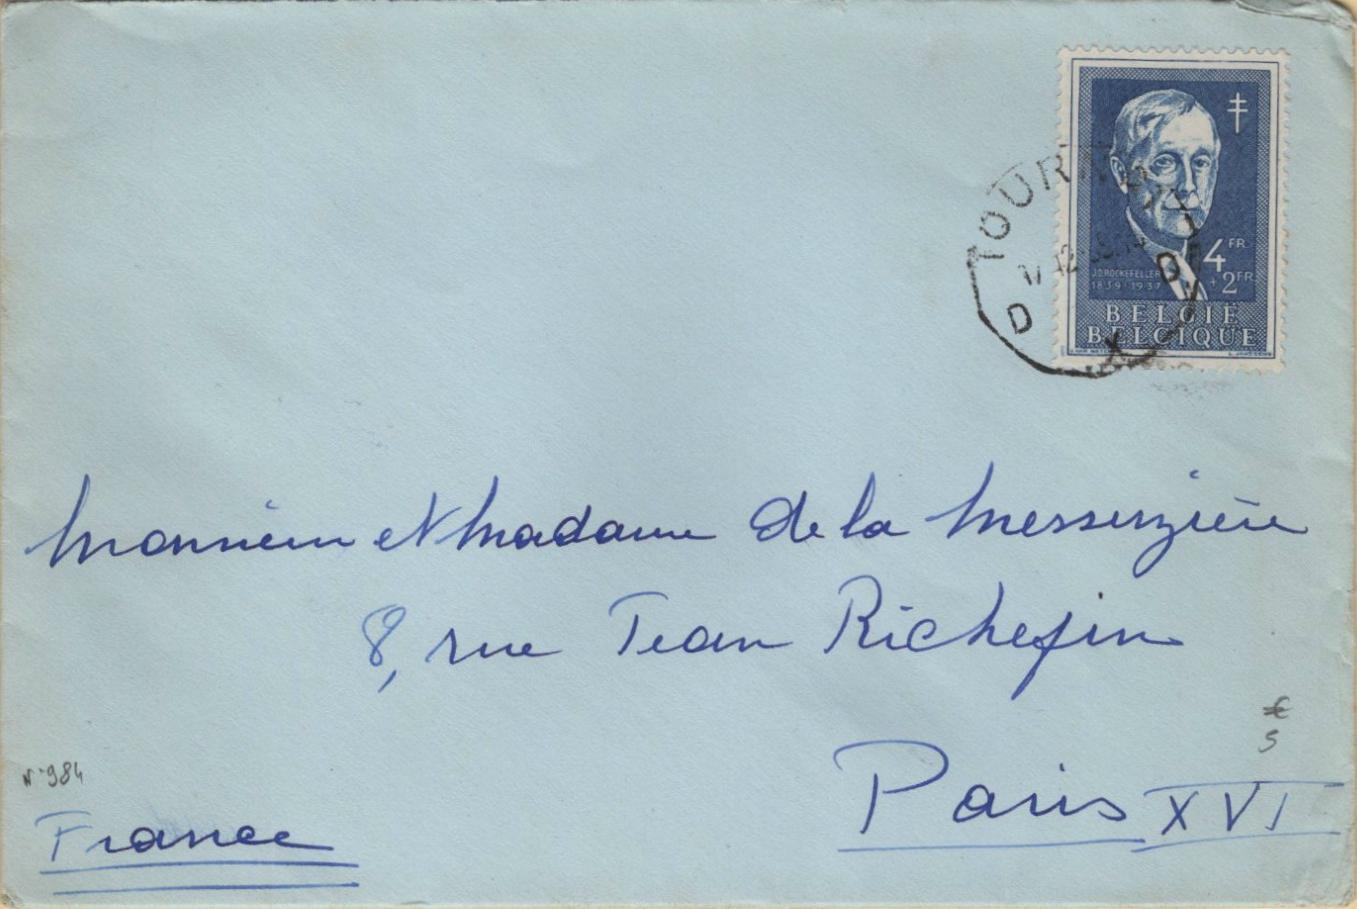 TOURNAI
D D
X
J.D.ROCKEFELLER
1839-1937
4 FR
+2 FR
BELGIË
BELGIQUE
Monsieur et Madame de la Messuzière
8, rue Jean Richepin
Paris XVI
€
5
N°984
France